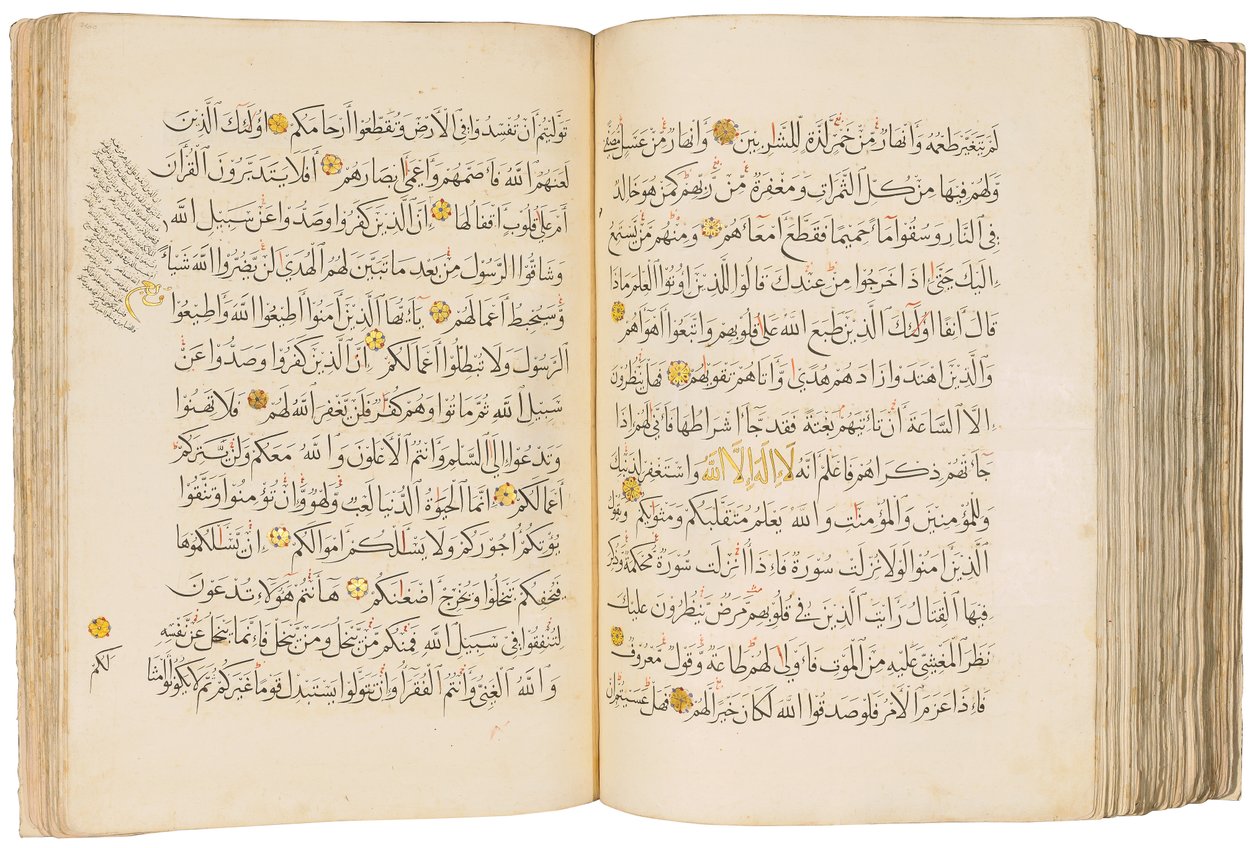 لَمْ يَتَغَيَّرْ طَعْمُهُ وَأَنْهَارٌ مِنْ خَمْرٍ لَذَّةٍ لِلشَّارِبِينَ وَأَنْهَارٌ مِنْ عَسَلٍ مُصَفًّى
وَلَهُمْ فِيهَا مِنْ كُلِّ الثَّمَرَاتِ وَمَغْفِرَةٌ مِنْ رَبِّهِمْ كَمَنْ هُوَ خَالِدٌ
فِي النَّارِ وَسُقُوا مَاءً حَمِيمًا فَقَطَّعَ أَمْعَاءَهُمْ وَمِنْهُمْ مَنْ يَسْتَمِعُ
إِلَيْكَ حَتَّى إِذَا خَرَجُوا مِنْ عِنْدِكَ قَالُوا لِلَّذِينَ أُوتُوا الْعِلْمَ مَاذَا
قَالَ آنِفًا أُولَئِكَ الَّذِينَ طَبَعَ اللَّهُ عَلَى قُلُوبِهِمْ وَاتَّبَعُوا أَهْوَاءَهُمْ
وَالَّذِينَ اهْتَدَوْا زَادَهُمْ هُدًى وَآتَاهُمْ تَقْوَاهُمْ فَهَلْ يَنْظُرُونَ
إِلَّا السَّاعَةَ أَنْ تَأْتِيَهُمْ بَغْتَةً فَقَدْ جَاءَ أَشْرَاطُهَا فَأَنَّى لَهُمْ إِذَا
جَاءَتْهُمْ ذِكْرَاهُمْ فَاعْلَمْ أَنَّهُ لَا إِلَهَ إِلَّا اللَّهُ وَاسْتَغْفِرْ لِذَنْبِكَ
وَلِلْمُؤْمِنِينَ وَالْمُؤْمِنَاتِ وَاللَّهُ يَعْلَمُ مُتَقَلَّبَكُمْ وَمَثْوَاكُمْ وَيَقُولُ
الَّذِينَ آمَنُوا لَوْلَا نُزِّلَتْ سُورَةٌ فَإِذَا أُنْزِلَتْ سُورَةٌ مُحْكَمَةٌ وَذُكِرَ
فِيهَا الْقِتَالُ رَأَيْتَ الَّذِينَ فِي قُلُوبِهِمْ مَرَضٌ يَنْظُرُونَ إِلَيْكَ
نَظَرَ الْمَغْشِيِّ عَلَيْهِ مِنَ الْمَوْتِ فَأَوْلَى لَهُمْ طَاعَةٌ وَقَوْلٌ مَعْرُوفٌ
فَإِذَا عَزَمَ الْأَمْرُ فَلَوْ صَدَقُوا اللَّهَ لَكَانَ خَيْرًا لَهُمْ فَهَلْ عَسَيْتُمْ إِنْ
تَوَلَّيْتُمْ أَنْ تُفْسِدُوا فِي الْأَرْضِ وَتُقَطِّعُوا أَرْحَامَكُمْ أُولَئِكَ الَّذِينَ
لَعَنَهُمُ اللَّهُ فَأَصَمَّهُمْ وَأَعْمَى أَبْصَارَهُمْ أَفَلَا يَتَدَبَّرُونَ الْقُرْآنَ
أَمْ عَلَى قُلُوبٍ أَقْفَالُهَا إِنَّ الَّذِينَ كَفَرُوا وَصَدُّوا عَنْ سَبِيلِ اللَّهِ
وَشَاقُّوا الرَّسُولَ مِنْ بَعْدِ مَا تَبَيَّنَ لَهُمُ الْهُدَى لَنْ يَضُرُّوا اللَّهَ شَيْئًا
وَسَيُحْبِطُ أَعْمَالَهُمْ يَا أَيُّهَا الَّذِينَ آمَنُوا أَطِيعُوا اللَّهَ وَأَطِيعُوا
الرَّسُولَ وَلَا تُبْطِلُوا أَعْمَالَكُمْ إِنَّ الَّذِينَ كَفَرُوا وَصَدُّوا عَنْ
سَبِيلِ اللَّهِ ثُمَّ مَاتُوا وَهُمْ كُفَّارٌ فَلَنْ يَغْفِرَ اللَّهُ لَهُمْ فَلَا تَهِنُوا
وَتَدْعُوا إِلَى السَّلْمِ وَأَنْتُمُ الْأَعْلَوْنَ وَاللَّهُ مَعَكُمْ وَلَنْ يَتِرَكُمْ
أَعْمَالَكُمْ إِنَّمَا الْحَيَوةُ الدُّنْيَا لَعِبٌ وَلَهْوٌ وَإِنْ تُؤْمِنُوا وَتَتَّقُوا
يُؤْتِكُمْ أُجُورَكُمْ وَلَا يَسْأَلْكُمْ أَمْوَالَكُمْ إِنْ يَسْأَلْكُمُوهَا
فَيُحْفِكُمْ تَبْخَلُوا وَيُخْرِجْ أَضْغَانَكُمْ هَا أَنْتُمْ هَؤُلَاءِ تُدْعَوْنَ
لِتُنْفِقُوا فِي سَبِيلِ اللَّهِ فَمِنْكُمْ مَنْ يَبْخَلُ وَمَنْ يَبْخَلْ فَإِنَّمَا يَبْخَلُ عَنْ نَفْسِهِ
وَاللَّهُ الْغَنِيُّ وَأَنْتُمُ الْفُقَرَاءُ وَإِنْ تَتَوَلَّوْا يَسْتَبْدِلْ قَوْمًا غَيْرَكُمْ ثُمَّ لَا يَكُونُوا أَمْثَا
لَكُمْ